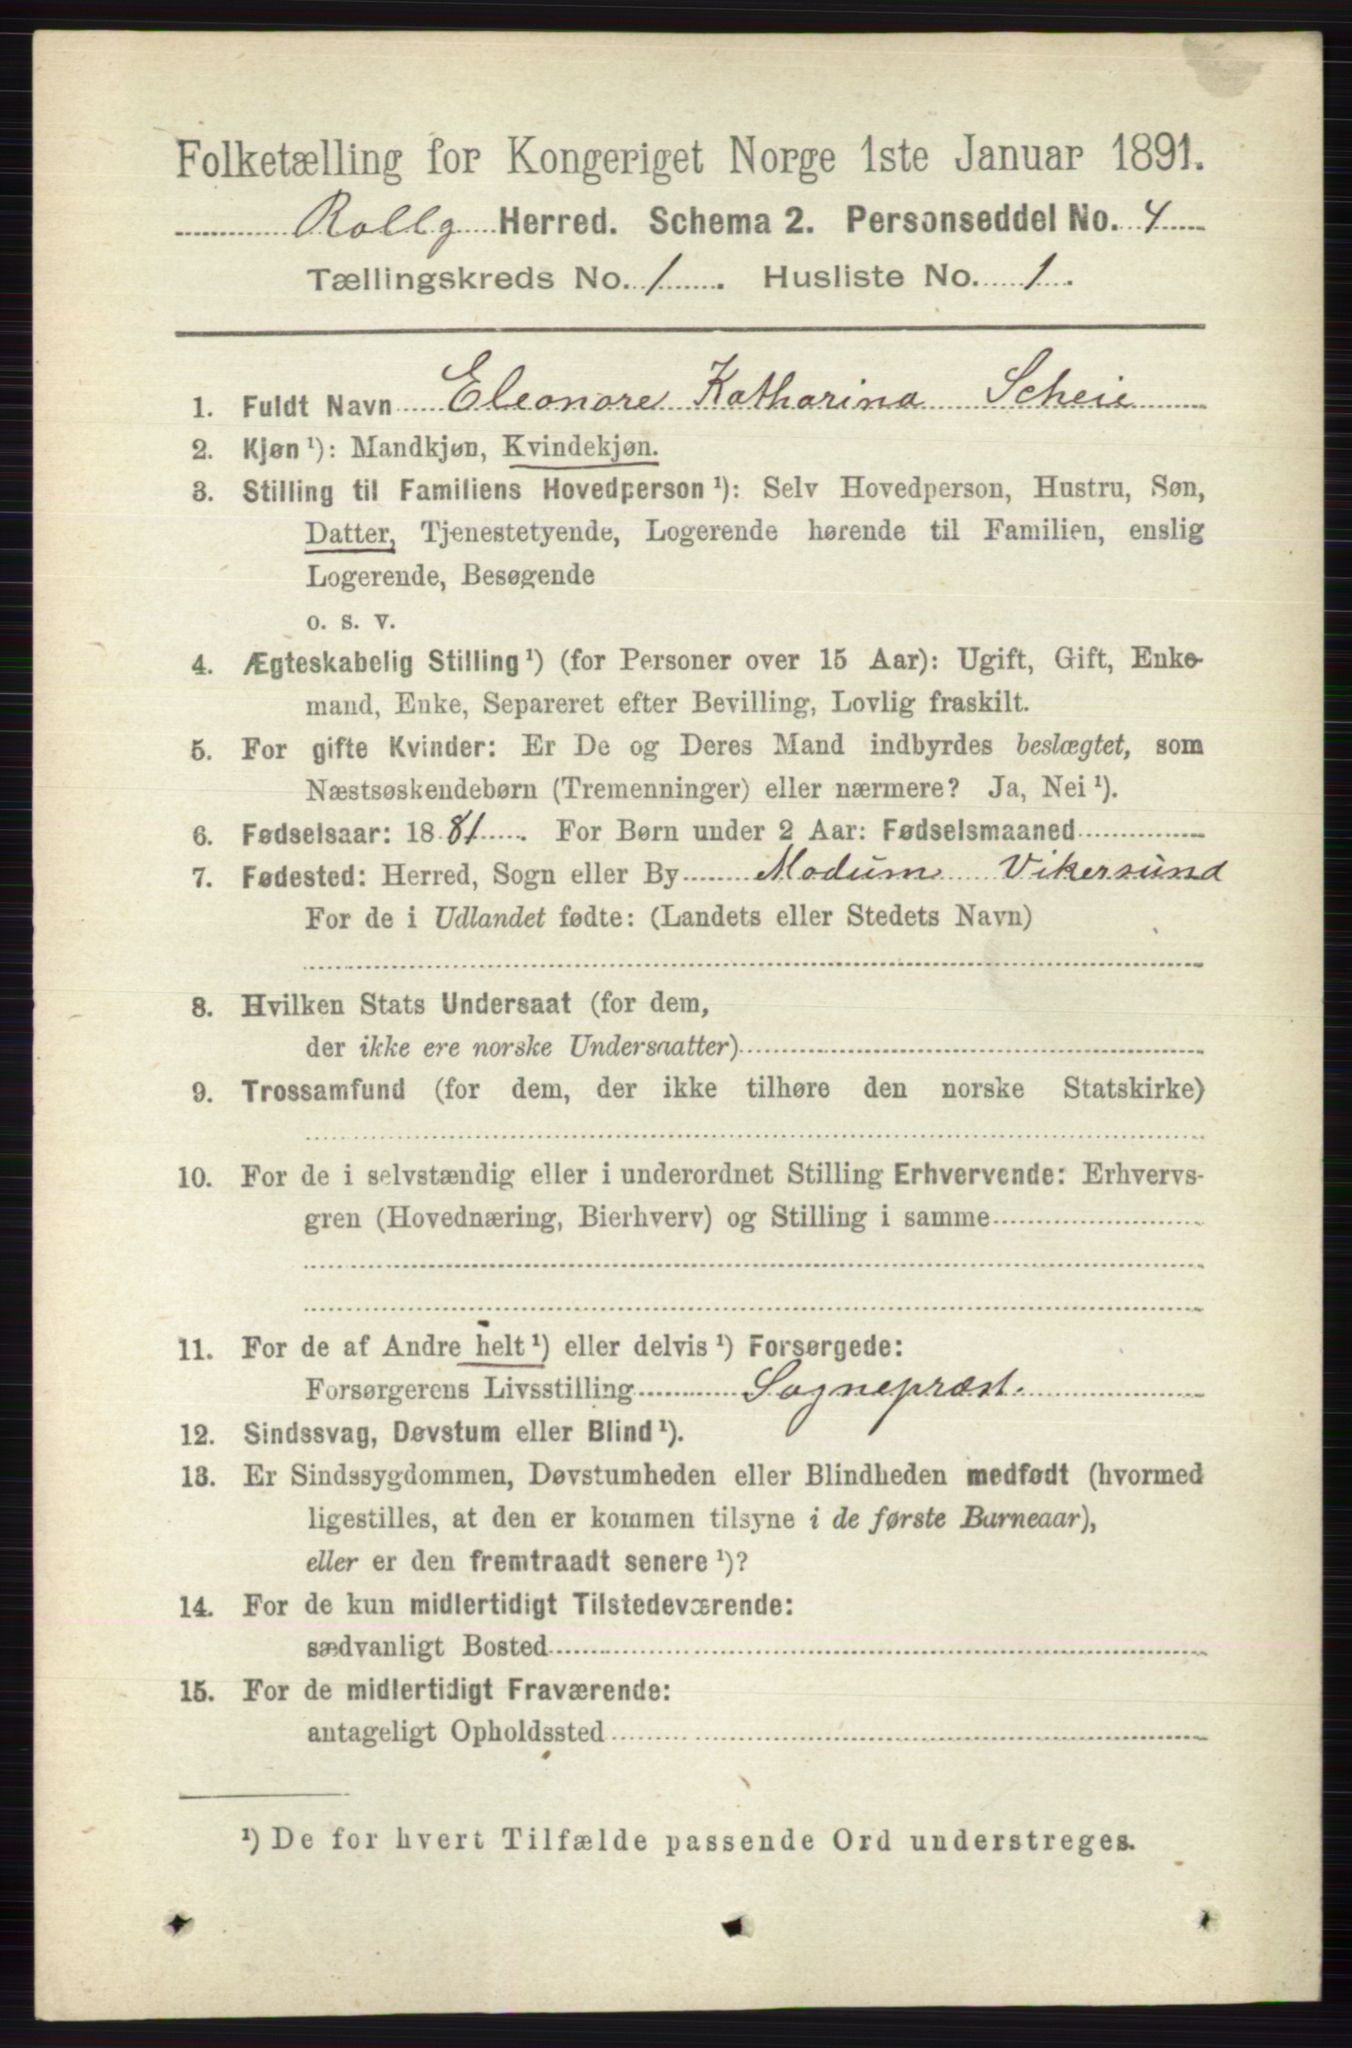 Folketælling for Kongeriget Norge 1ste Januar 1891.
Rollg Herred. Schema 2. Personseddel No. 4
Tællingskreds No. 1. Husliste No. 1.
1. Fuldt Navn Eleonore Katharina Scheie
2. Kjøn ¹): Mandkjøn, Kvindekjøn.
3. Stilling til Familiens Hovedperson ¹): Selv Hovedperson, Hustru, Søn,
Datter, Tjenestetyende, Logerende hørende til Familien, enslig
Logerende, Besøgende
o. s. v.
4. Ægteskabelig Stilling ¹) (for Personer over 15 Aar): Ugift, Gift, Enke-
mand, Enke, Separeret efter Bevilling, Lovlig fraskilt.
5. For gifte Kvinder: Er De og Deres Mand indbyrdes beslægtet, som
Næstsøskendebørn (Tremenninger) eller nærmere? Ja, Nei ¹).
6. Fødselsaar: 1881. For Børn under 2 Aar: Fødselsmaaned
7. Fødested: Herred, Sogn eller By Modum Vikersund
For de i Udlandet fødte: (Landets eller Stedets Navn)
8. Hvilken Stats Undersaat (for dem,
der ikke ere norske Undersaatter)
9. Trossamfund (for dem, der ikke tilhøre den norske Statskirke)
10. For de i selvstændig eller i underordnet Stilling Erhvervende: Erhvervs-
gren (Hovednæring, Bierhverv) og Stilling i samme
11. For de af Andre helt ¹) eller delvis ¹) Forsørgede:
Forsørgerens Livsstilling Sognepræst.
12. Sindssvag, Døvstum eller Blind ¹).
13. Er Sindssygdommen, Døvstumheden eller Blindheden medfødt (hvormed
ligestilles, at den er kommen tilsyne i de første Barneaar),
eller er den fremtraadt senere ¹)?
14. For de kun midlertidigt Tilstedeværende:
sædvanligt Bosted
15. For de midlertidigt Fraværende:
antageligt Opholdssted
¹) De for hvert Tilfælde passende Ord understreges.